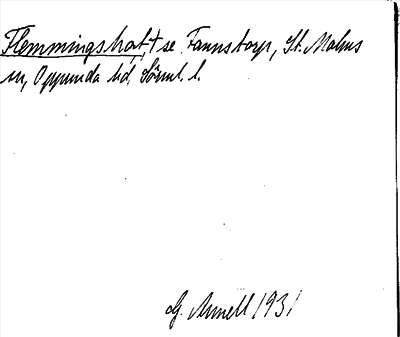 Flemmingshof,† se Fannstorp, St. Malms
sn, Oppunda hd, Sörml. l.
G. Arnell 1931